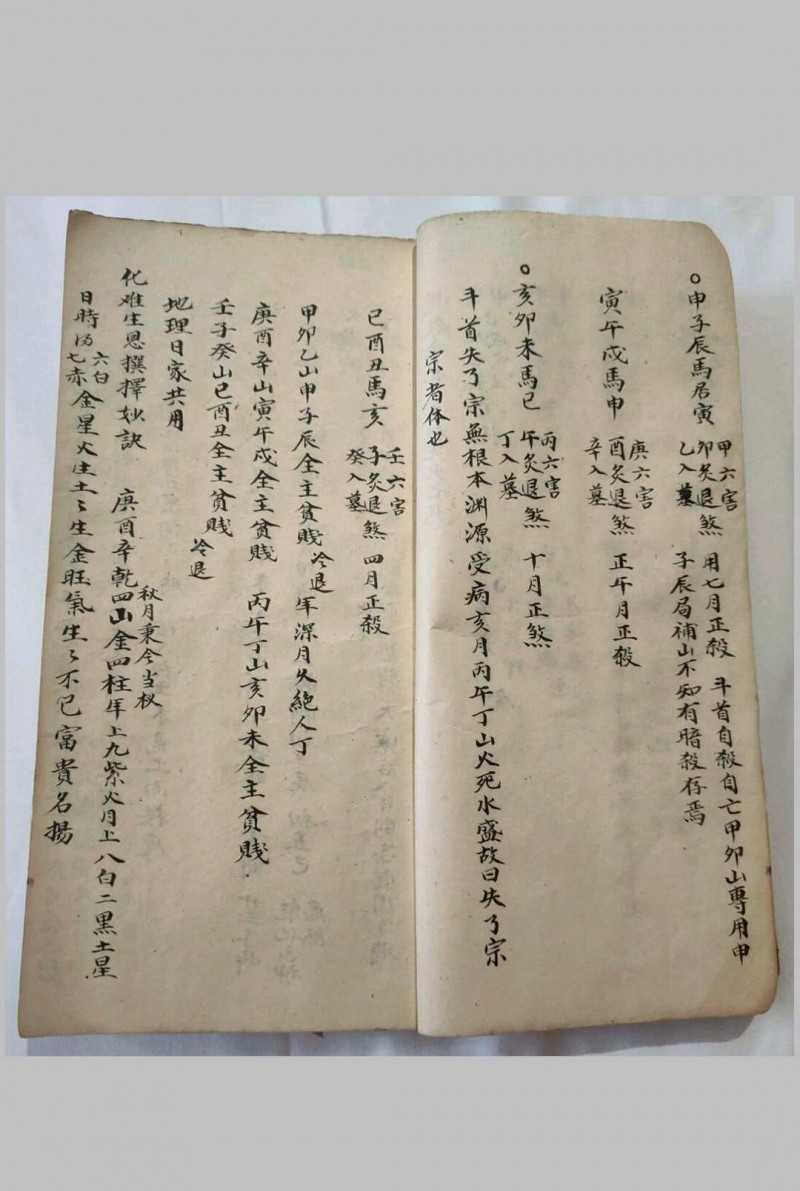 ○申子辰馬居寅
甲六害
卯灸退煞
乙入墓
用七月正殺 斗首自殺自亡甲卯山專用申
子辰局補山不知有暗殺存焉
寅午戍馬申
庚六害
酉灸退煞
辛入墓
正午月正殺
○亥卯未馬巳
丙六害
午灸退煞
丁入墓
十月正煞
斗首失了宗無根本渊源受病亥月丙午丁山火死水盛故曰失了宗
宗者体也
巳酉丑馬亥
壬六害
子灸退煞
癸入墓
四月正殺
甲卯乙山申子辰全主貧賤冷退年深月久絕人丁
庚酉辛山寅午戍全主貧賤 丙午丁山亥卯未全主貧賤
壬子癸山巳酉丑全主貧賤冷退
地理日家共用
化难生恩撰擇妙訣 庚酉辛乾四山金四柱年上九紫火月上八白二黑土星
秋月秉令当权
日時以六白七赤金星火生土〻生金旺氣生〻不已富貴名揚